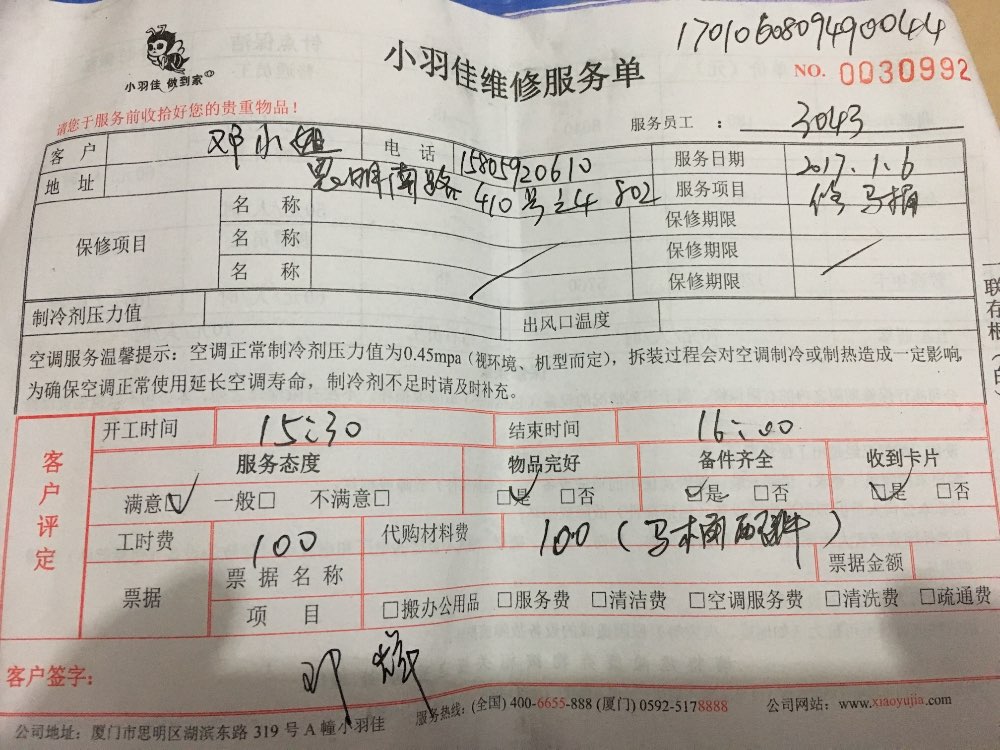 17010608094900044
小羽佳 做到家
小羽佳维修服务单
NO. 0030992
请您于服务前收拾好您的贵重物品！
服务员工 ： 3043
客户 邓小姐 电话 15805920610 服务日期 2017.1.6
地址 思明南路 410号之4 802 服务项目 修马桶
保修项目 名称 保修期限
名称 保修期限
名称 保修期限
制冷剂压力值 出风口温度
空调服务温馨提示：空调正常制冷剂压力值为0.45mpa（视环境、机型而定），拆装过程会对空调制冷或制热造成一定影响，
为确保空调正常使用延长空调寿命，制冷剂不足时请及时补充。
客户评定
开工时间 15:30 结束时间 16:00
服务态度 物品完好 备件齐全 收到卡片
满意☑ 一般□ 不满意□ ☑是 □否 ☑是 □否 ☑是 □否
工时费 100 代购材料费 100（马桶配件）
票据 票据名称 票据金额
项目 □搬办公用品 □服务费 □清洁费 □空调服务费 □清洗费 □疏通费
客户签字： 邓
公司地址：厦门市思明区湖滨东路 319 号 A 幢小羽佳 服务热线：(全国) 400-6655-888 (厦门) 0592-5178888 公司网站：www.xiaoyujia.com
联存根(白)